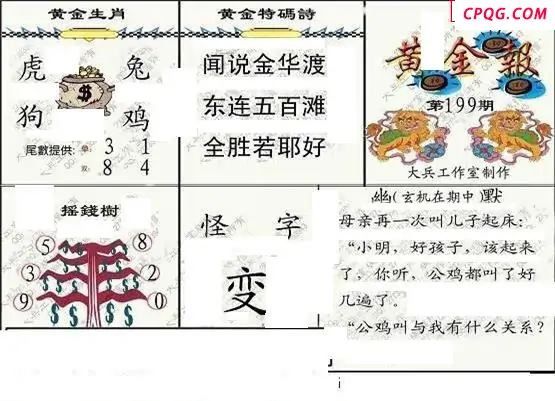 CPQG.COM
黄金生肖
虎 兔
狗 鸡
尾數提供: 单 3 1
双 8 4
黄金特碼詩
闻说金华渡
东连五百滩
全胜若耶好
黄金報
第199期
大兵工作室制作
摇錢樹
5 8
3 2
9 0
怪 字
变
幽(玄机在期中)默
母亲再一次叫儿子起床:
“小明,好孩子,该起来
了,你听,公鸡都叫了好
几遍了。
“公鸡叫与我有什么关系?